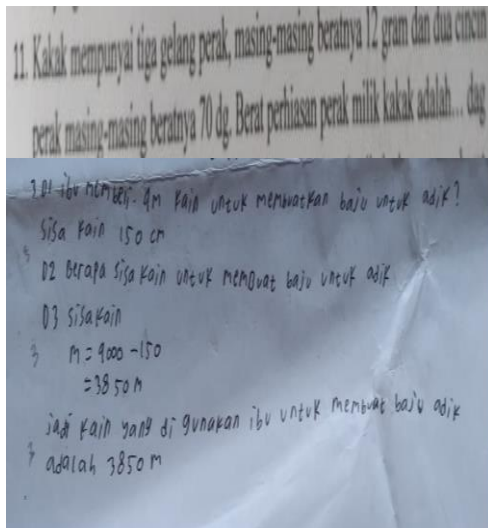 11. Kakak mempunyai tiga gelang perak, masing-masing beratnya 12 gram dan dua cincin
perak masing-masing beratnya 70 dg. Berat perhiasan perak milik kakak adalah... dag
3. D1 ibu membeli 4m kain untuk membuatkan baju untuk adik?
Sisa kain 150 cm
D2 Berapa sisa kain untuk membuat baju untuk adik
D3 sisa kain
3 M = 4000 - 150
= 3850 M
jadi kain yang di gunakan ibu untuk membuat baju adik
3 adalah 3850 M